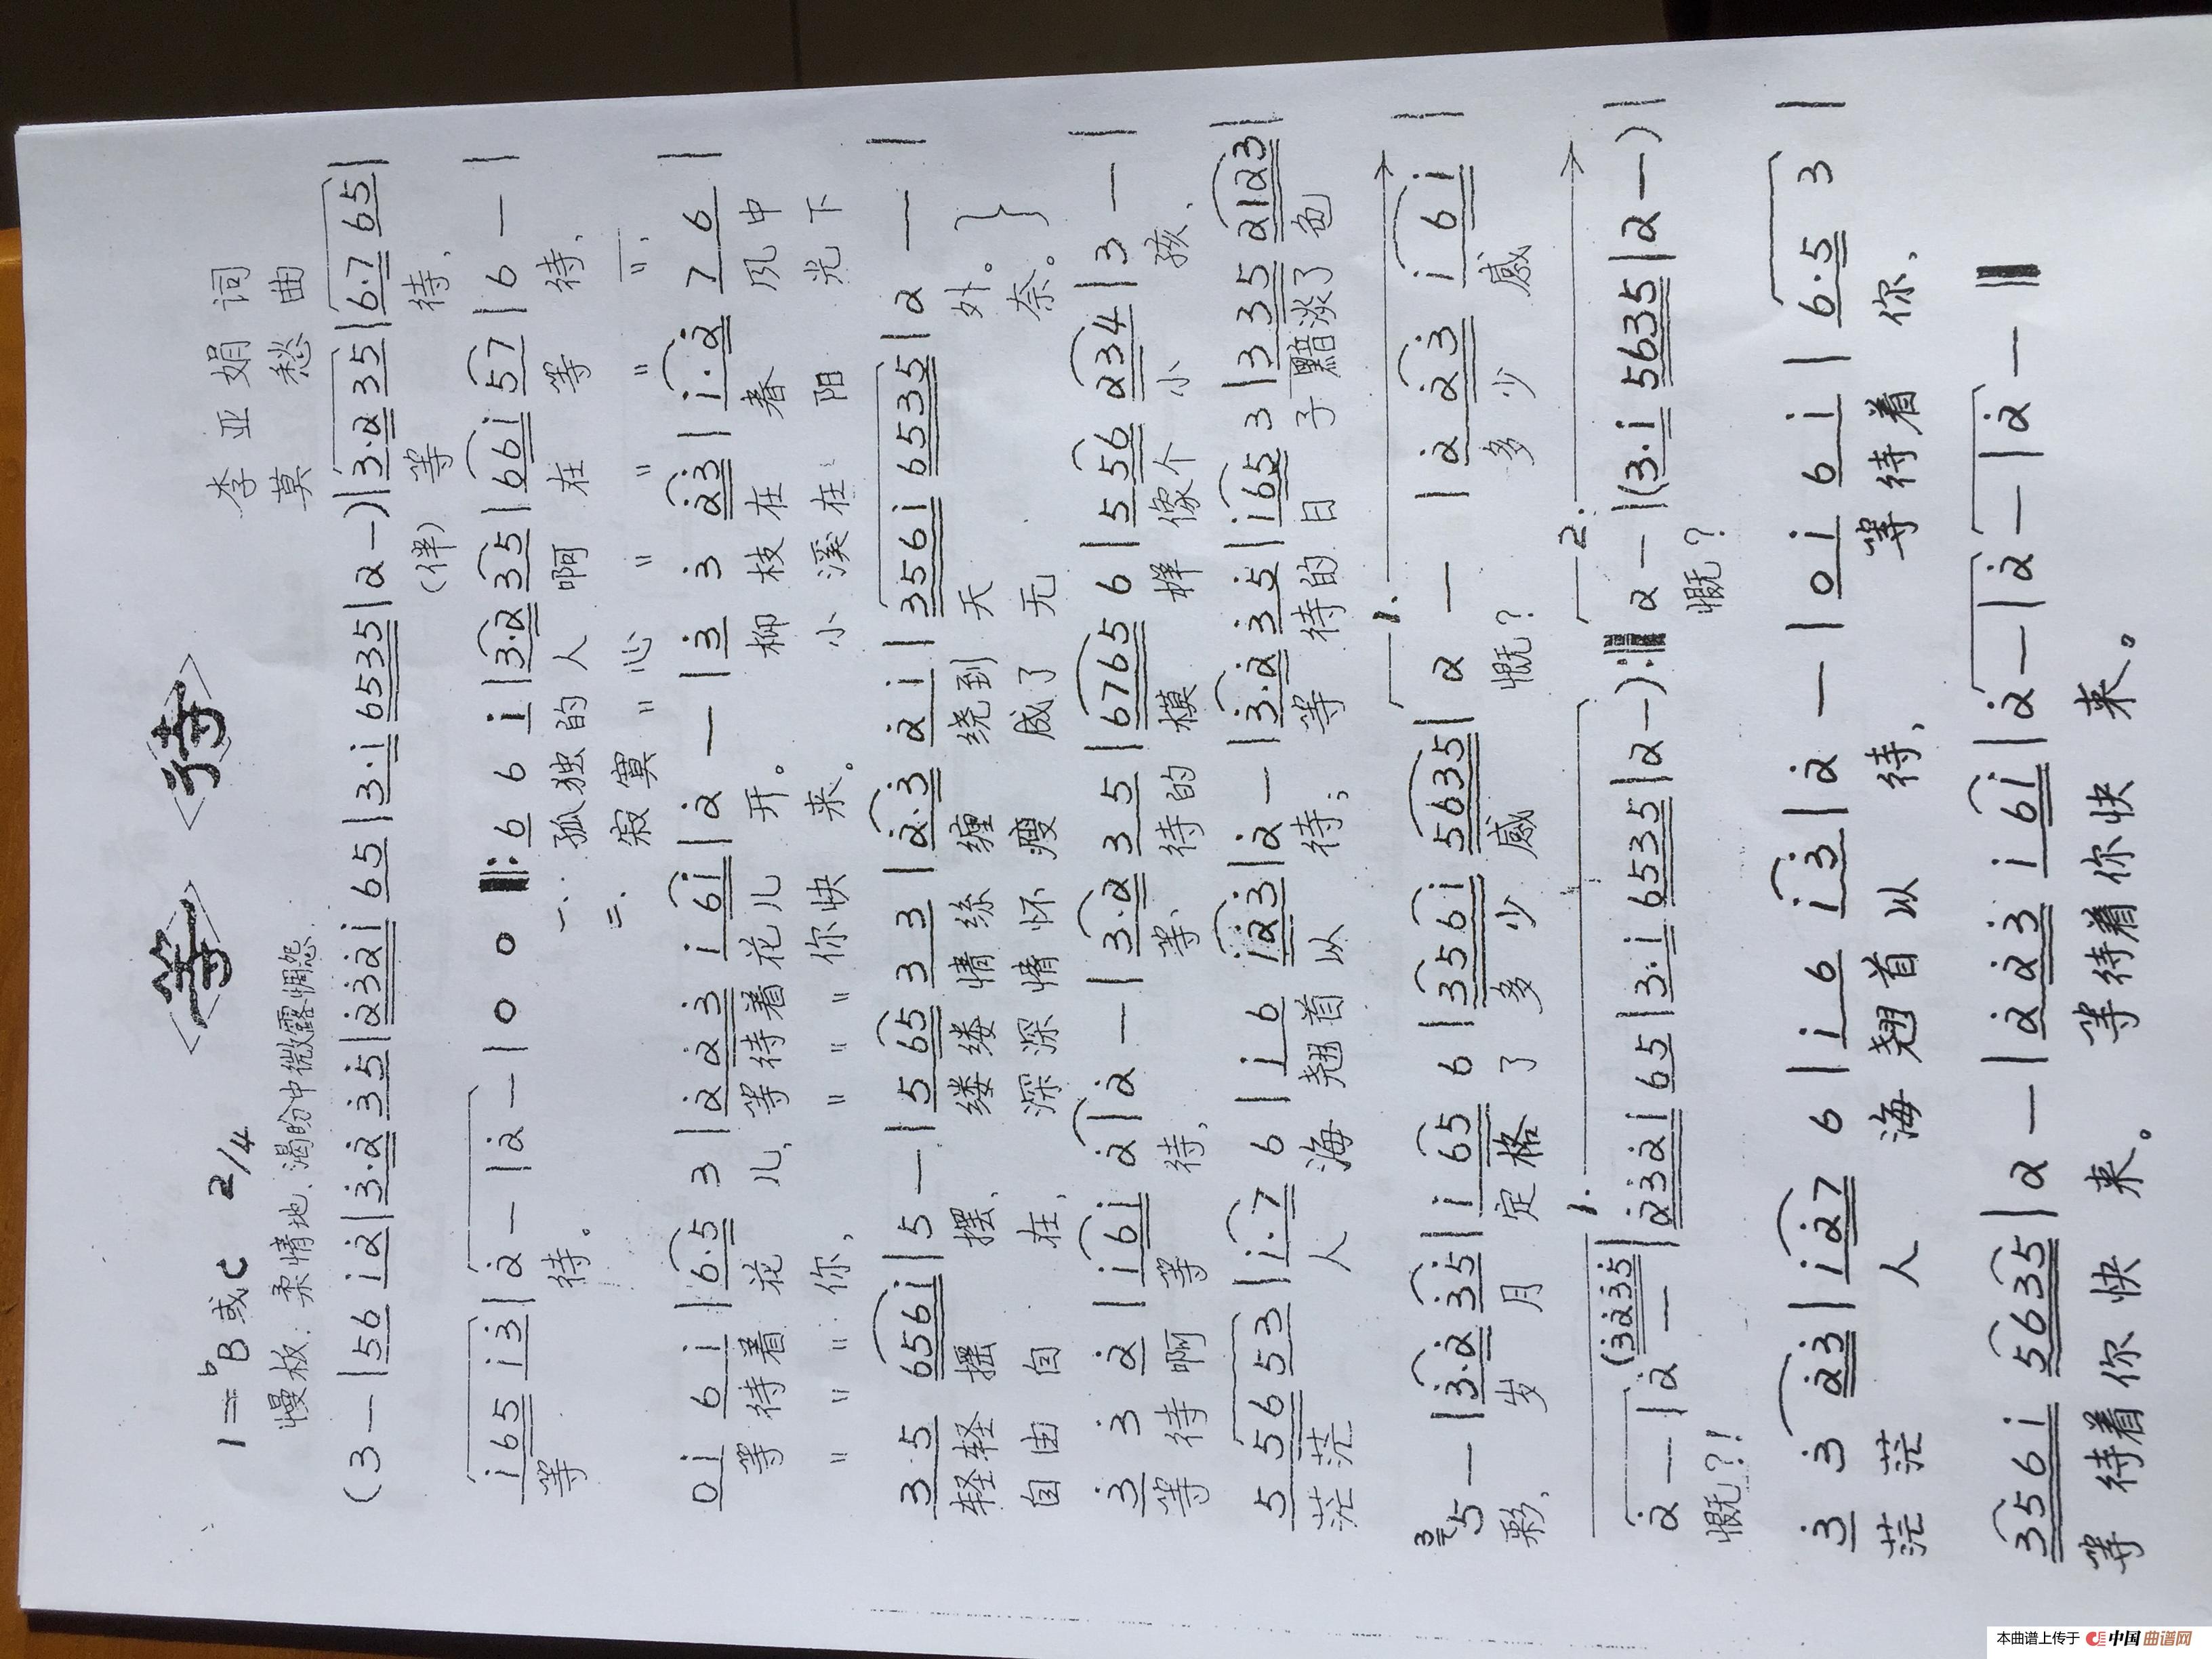 <等> <待>
1=ᵇB或C 2/4 李亚娟 词
慢板.柔情地、渴盼中微露惆怨. 莫愁 曲
(3 — | 5 6 i 2 | 3·2 3 5 | 2 3 2 i 6 5 | 3·i 6 5 3 5 | 2 —) | 3·2 3 5 | 6·7 6 5 |
(伴) 等 待,
i 6 5 i 3 | 2 — | 2 — | 0 0 ‖: 6 6 i | 3·2 3 5 | 6 6 i 5 7 | 6 — |
等 待。 一、孤独的人 啊 在 等 待,
二、寂寞〃心 〃 〃 〃 〃,
0 i 6 i | 6·5 3 | 2 2 3 i 6 i | 2 — | 3 3 2 3 | i·2 7 6 |
等 待着 花 儿, 等待着花儿 开。 柳枝在 春 风中
〃 〃 〃 你, 〃 〃 〃 你快 来。 小 溪在 阳 光下
3 5 6 5 6 i | 5 — | 5 6 5 3 3 | 2·3 2 i | 3 5 6 i 6 5 3 5 | 2 — |
轻轻 摇 摆, 缕 缕 情 丝 缠 绕到 天 外。
自由 自 在, 深 深 情 怀 瘦 成了 无 奈。
3 3 2 | i 6 i 2 | 2 — | 3·2 3 5 | 6 7 6 5 6 | 5 5 6 2 3 4 | 3 — |
等 待 啊 等 待, 等 待的 模 样 像个 小 孩,
5 5 6 5 3 | i·7 6 | i 6 i 2 3 | 2 — | 3·2 3 5 | i 6 5 3 | 3 3 5 2 1 2 3 |
茫 茫 人 海 翘首 以 待; 等 待的 日 子 黯淡了 色
5 — | 3·2 3 5 | i 6 5 6 | 3 5 6 i 5 6 3 5 | 2 — | 2 2 3 i 6 i |
彩, 岁 月 定 格 了 多 少 感 慨? 多 少 感
2 — | 2 — (3 2 3 5 | 2 3 2 i 6 5 | 3·i 6 5 3 5 | 2 —) :‖ 2 — | (3·i 5 6 3 5 | 2 —) |
慨?! 慨?
3 3 2 3 | i 2 7 6 | i 6 i 3 | 2 — | 0 i 6 i | 6·5 3 |
茫 茫 人 海 翘首 以 待, 等 待着 你,
3 5 6 i 5 6 3 5 | 2 — | 2 2 3 i 6 i | 2 — | 2 — | 2 — ‖
等 待着你 快 来。 等 待着 你快 来。
本曲谱上传于 中国曲谱网